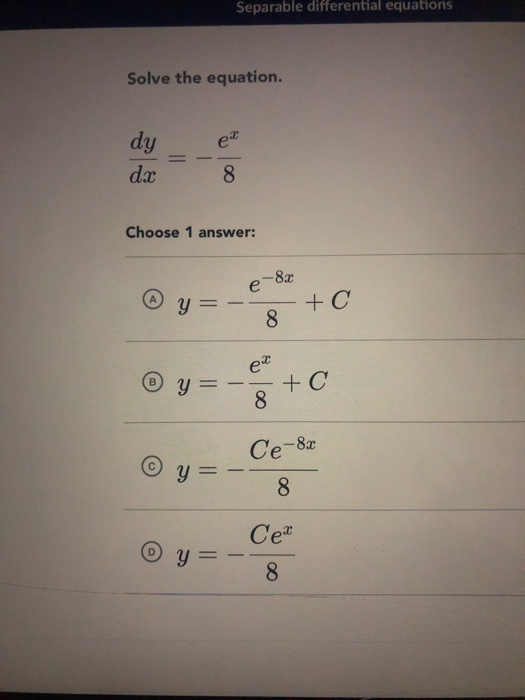 Separable differential equations
Solve the equation.
dy/dx = -e^x/8
Choose 1 answer:
A y = -e^{-8x}/8 + C
B y = -e^x/8 + C
C y = -Ce^{-8x}/8
D y = -Ce^x/8